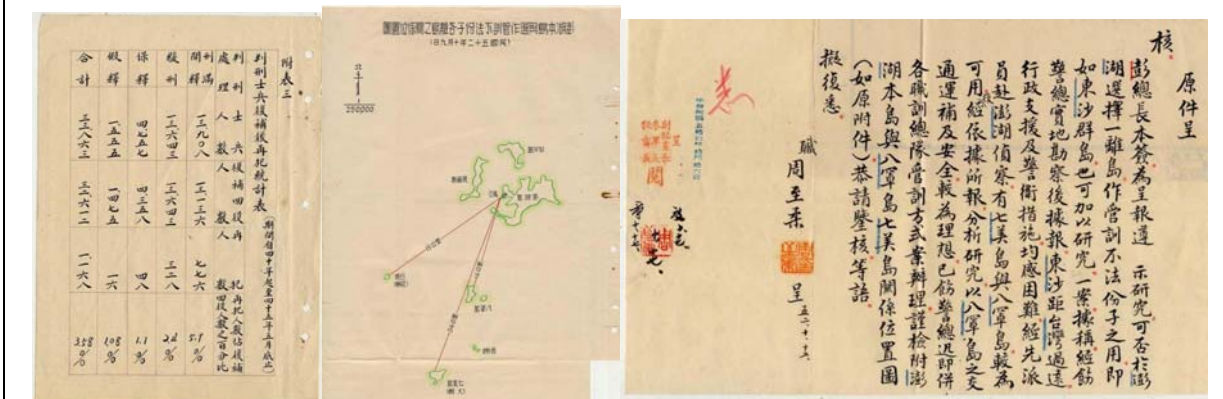 附表三
判刑士兵復補後再犯統計表（期間自四十年起至四十五年五月底止）
處理 判刑士兵人數 復補回役人數 再犯人數 再犯人數佔復補回役人數之百分比
刑滿開釋 一三九〇八 一三一三六 七七六 5.9%
緩刑 一三六四三 一三六四三 三二八 2.4%
保釋 四七五七 四三五八 四八 1.1%
假釋 一五五五 一四七五 一六 1.08%
合計 三三八六三 三二六一二 一一六八 3.58%
澎湖本島與選作管訓不法份子各離島之關係位置圖
(民國五十二年十月九日)
北
1
250000
七美島
(大嶼)
原件呈
核
彭總長本簽為呈報遵　示研究可否於澎
湖選擇一離島作管訓不法份子之用即
如東沙群島也可加以研究一案據稱經飭
警總實地勘察後據報東沙距台灣過遠
行政支援及警衛措施均感困難經先派
員赴澎湖偵察有七美島與八罩島較為
可用經依據所報分析研究以八罩島之交
通運補及安全較為理想已飭警總迅即併
各職訓總隊管訓方式案辦理謹檢附澎
湖本島與八罩島七美島關係位置圖
（如原附件）恭請鑒核等語
擬復悉
職 周至柔 呈 五二、十、十五
悉
呈
閱